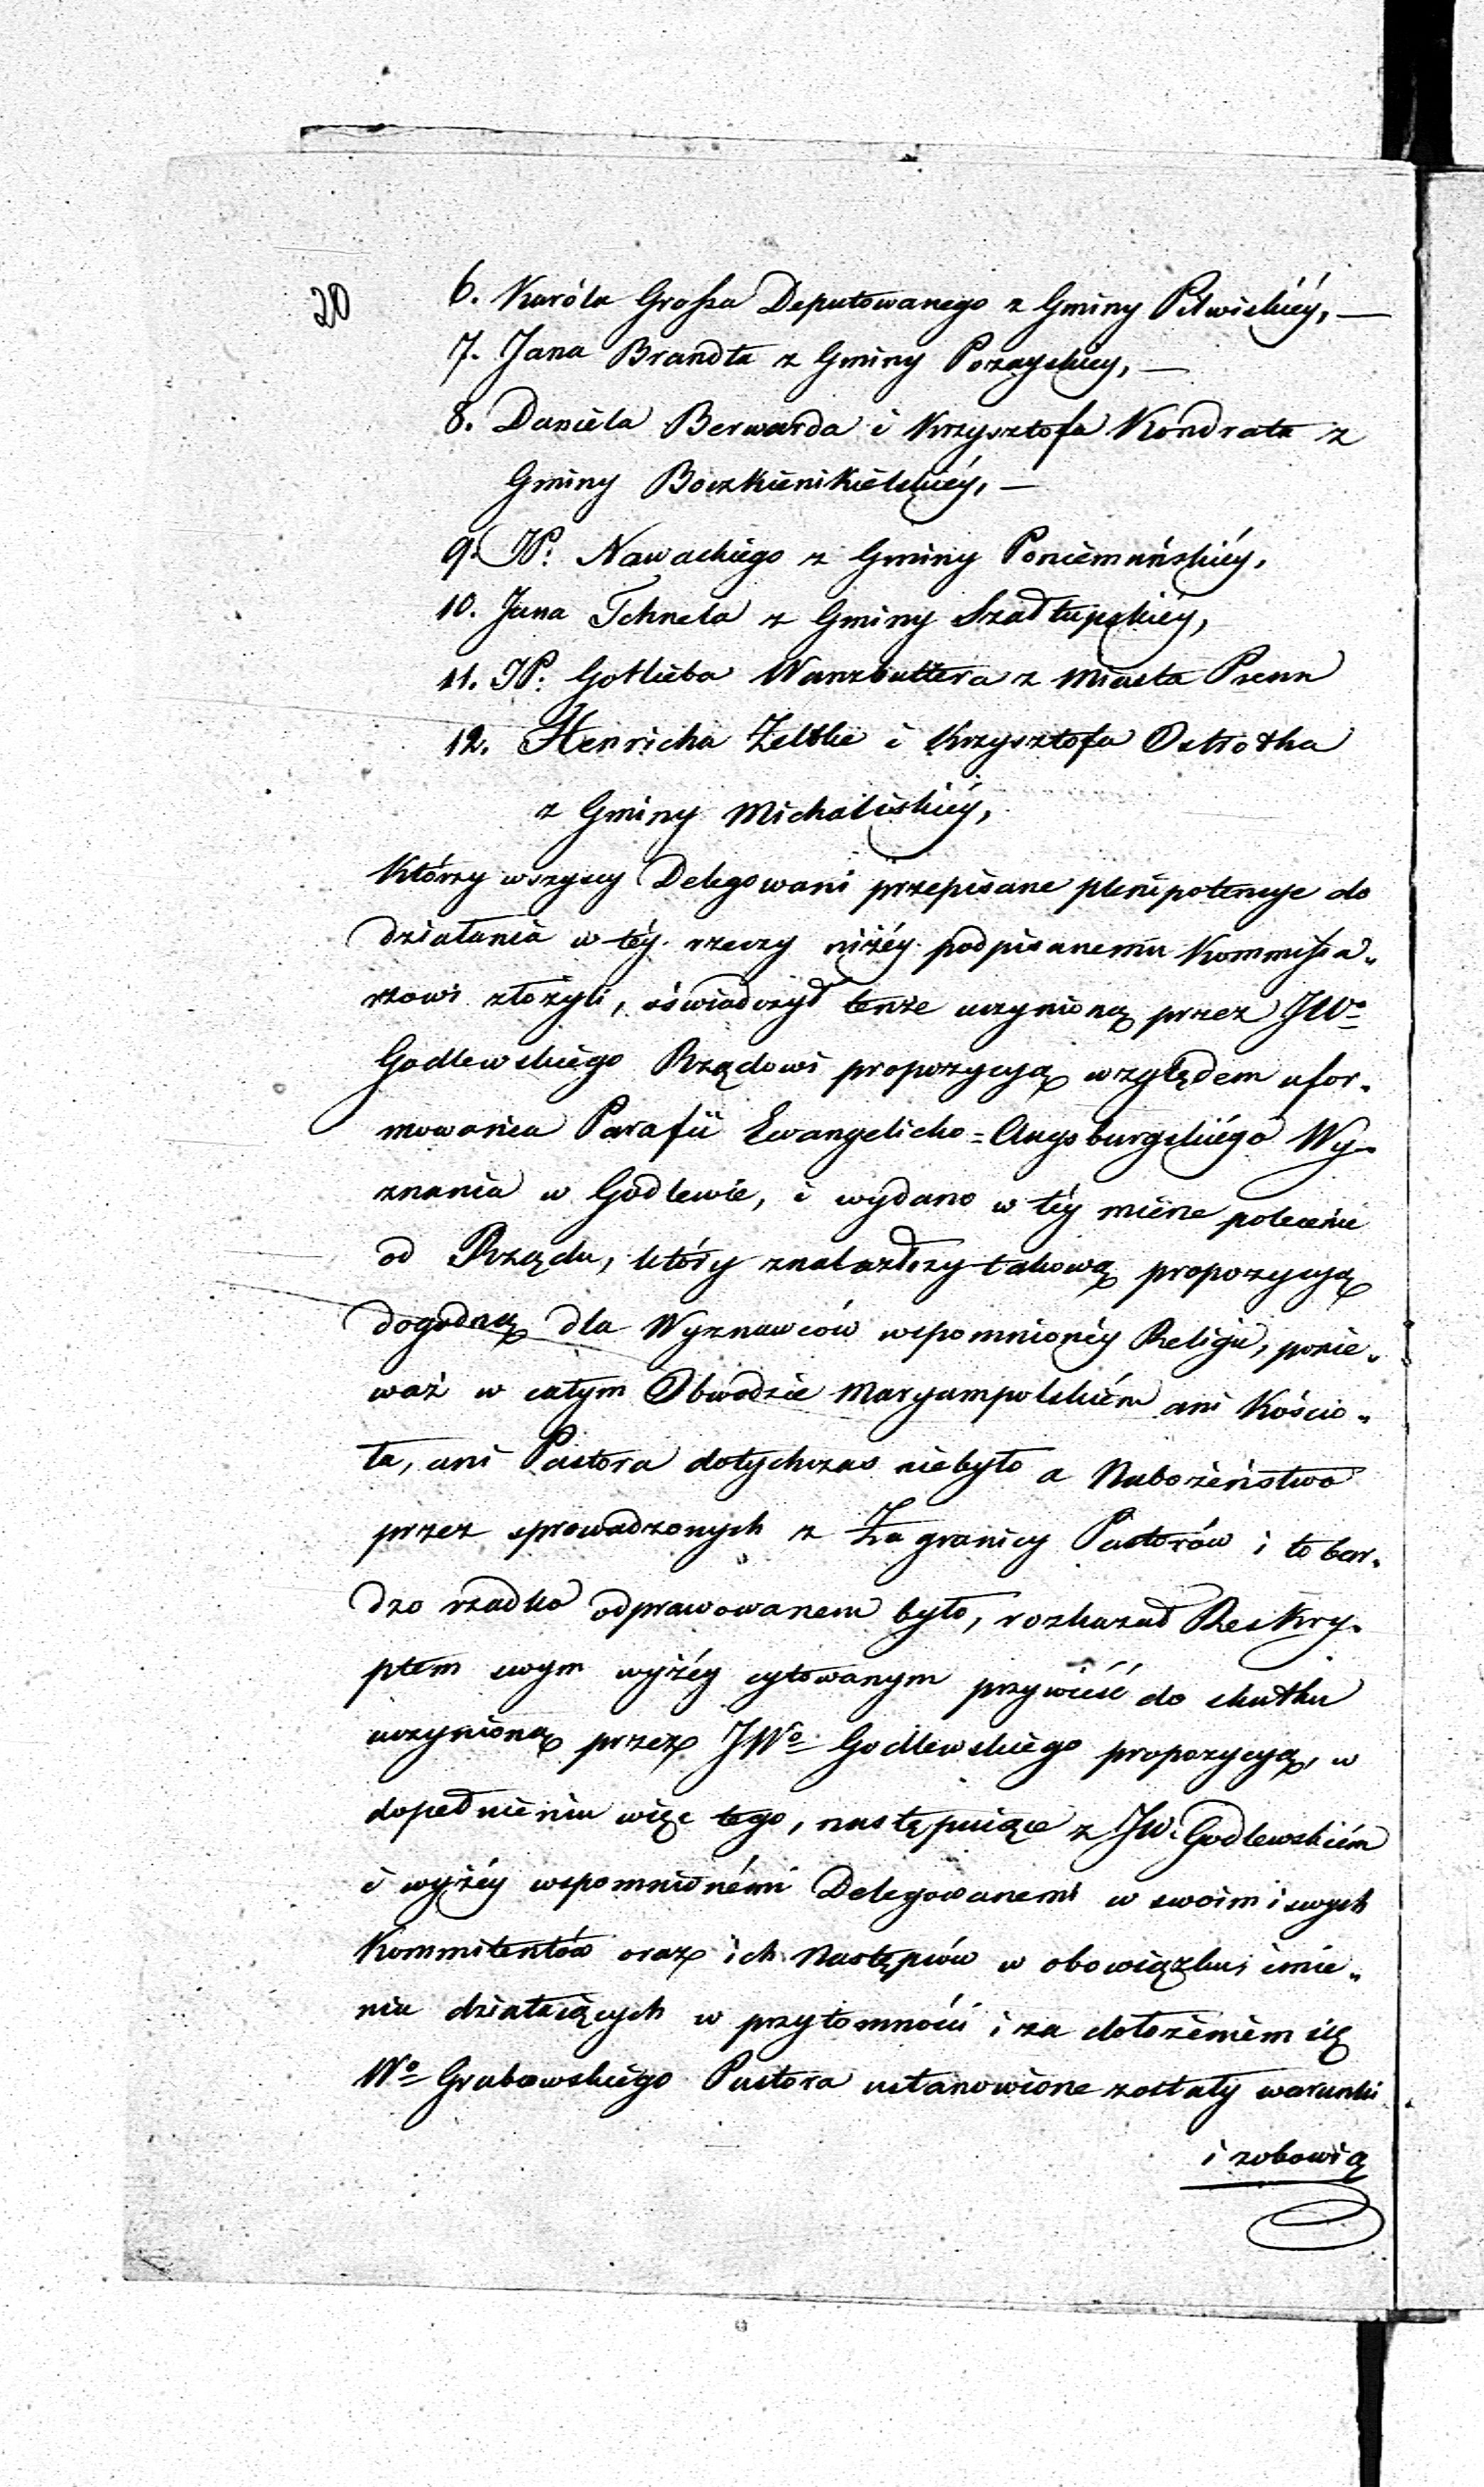 20
6. Karóla Grossa Deputowanego z Gminy Pilwiskiéy, —
7. Jana Brandta z Gminy Pożayskiey, —
8. Daniela Berwarda i Krzysztofa Kondrata z
Gminy Boczkienikielskiéy, —
9. JP: Nawackiego z Gminy Poniemuńskiéy,
10. Jana Tchnela z Gminy Szadłupskiéy,
11. JP: Gotlieba Wanzbuttera z Miasta Prenn
12. Henricha Zeltke i Krzysztofa Ostrotka
z Gminy Michaliskiéy,
Którzy wszyscy Delegowani przepisane plenipotencye do
działania w téy rzeczy niżéy podpisanemu Kommissa„
rzowi złożyli, oświadczył tenże uczynioną przez JWo
Godlewskiego Rządowi propozycyą względem ufor„
mowania Parafii Ewangelicko=Augsburgskiégo Wy„
znania w Godlewie, i wydano w téy mierze polecenie
od Rządu, który znalazłszy takową propozycyą
dogodną dla Wyznawców wspomnionéy Religii, ponie„
waż w całym Obwodzie Maryampolskiém ani Kościo„
ła, ani Pastora dotychczas niebyło a Nabożeństwo
przez sprowadzonych z Zagranicy Pastorów i to bar„
dzo rzadko odprawowanem było, rozkazał Reskry„
ptem swym wyżéy cytowanym przywieść do skutku
uczynioną przez JWo Godlewskiego propozycyą, w
dopełnieniu więc tego, następuiące z JW. Godlewskiém
i wyżéy wspomnionémi Delegowanemi w swoim i swych
Kommitentów oraz ich Następców w obowiązku, imie„
niu działaiących w przytomności i za dołożeniem się
Wo Grabowskiego Pastora ustanowione zostały warunki
i zobowią